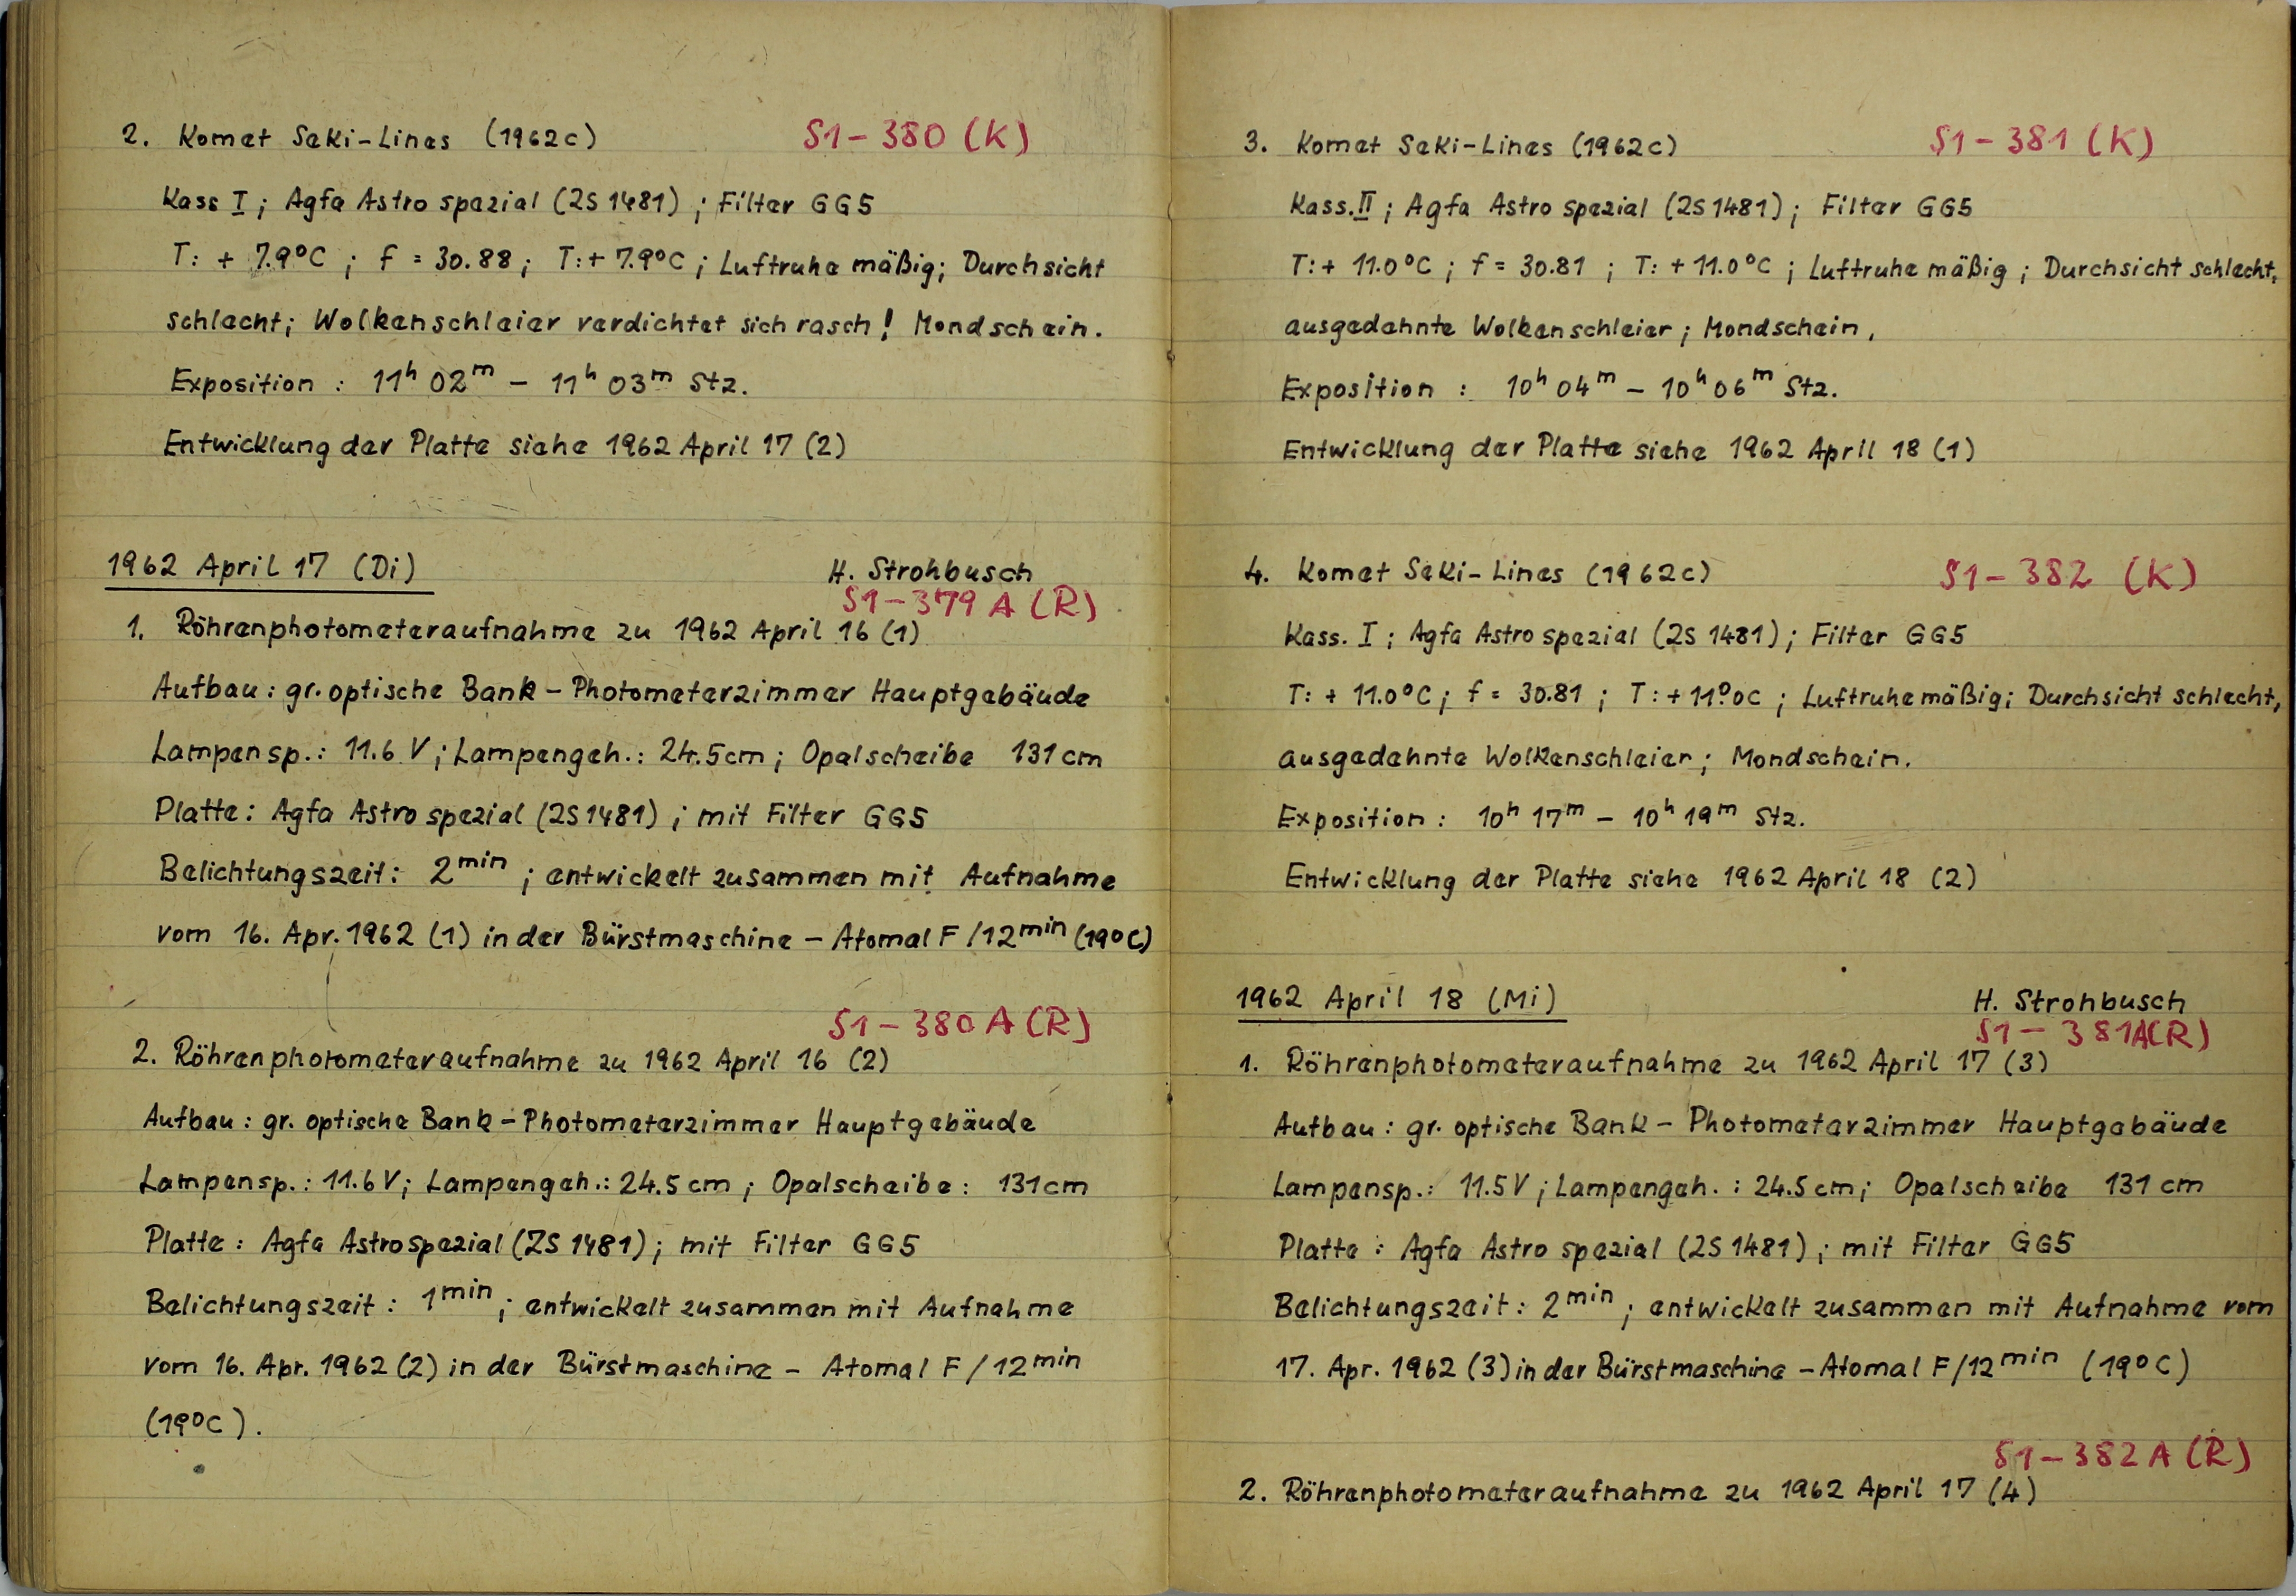 2. Komet Seki-Lines (1962c) S1-380 (K)
Kass I; Agfa Astro spezial (2S1481); Filter GG5
T: + 7.9°C ; f = 30.88; T: + 7.9°C; Luftruhe mäßig; Durchsicht
schlecht; Wolkenschleier verdichtet sich rasch! Mondschein.
Exposition : 11h 02m – 11h 03m Stz.
Entwicklung der Platte siehe 1962 April 17 (2)
1962 April 17 (Di) H. Strohbusch
S1-379 A (R)
1. Röhrenphotometeraufnahme zu 1962 April 16 (1)
Aufbau: gr. optische Bank – Photometerzimmer Hauptgebäude
Lampensp.: 11.6 V; Lampengeh.: 24.5cm; Opalscheibe 131cm
Platte: Agfa Astro spezial (2S1481); mit Filter GG5
Belichtungszeit: 2min ; entwickelt zusammen mit Aufnahme
vom 16. Apr. 1962 (1) in der Bürstmaschine – Atomal F/12min (19°C)
S1-380 A (R)
2. Röhrenphotometeraufnahme zu 1962 April 16 (2)
Aufbau: gr. optische Bank – Photometerzimmer Hauptgebäude
Lampensp.: 11.6 V; Lampengeh.: 24.5 cm; Opalscheibe: 131cm
Platte: Agfa Astrospezial (ZS 1481); mit Filter GG5
Belichtungszeit: 1min; entwickelt zusammen mit Aufnahme
vom 16. Apr. 1962 (2) in der Bürstmaschine – Atomal F/12min
(19°C).
3. Komet Seki-Lines (1962c) S1-381 (K)
Kass. II; Agfa Astro spezial (2S1481); Filter GG5
T: + 11.0°C; f = 30.81 ; T: + 11.0°C ; Luftruhe mäßig; Durchsicht schlecht,
ausgedehnte Wolkenschleier; Mondschein,
Exposition : 10h 04m – 10h 06m Stz.
Entwicklung der Platte siehe 1962 April 18 (1)
4. Komet Seki-Lines (1962c) S1-382 (K)
Kass. I; Agfa Astro spezial (2S1481); Filter GG5
T: + 11.0°C; f = 30.81 ; T: + 11°.0C ; Luftruhe mäßig; Durchsicht schlecht,
ausgedehnte Wolkenschleier; Mondschein.
Exposition: 10h 17m – 10h 19m Stz.
Entwicklung der Platte siehe 1962 April 18 (2)
1962 April 18 (Mi) H. Strohbusch
S1-381A(R)
1. Röhrenphotometeraufnahme zu 1962 April 17 (3)
Aufbau: gr. optische Bank – Photometerzimmer Hauptgebäude
Lampensp.: 11.5V; Lampengeh.: 24.5 cm; Opalscheibe 131 cm
Platte: Agfa Astro spezial (2S1481); mit Filter GG5
Belichtungszeit: 2min ; entwickelt zusammen mit Aufnahme vom
17. Apr. 1962 (3) in der Bürstmaschine – Atomal F/12min (19°C)
S1-382 A (R)
2. Röhrenphotometeraufnahme zu 1962 April 17 (4)